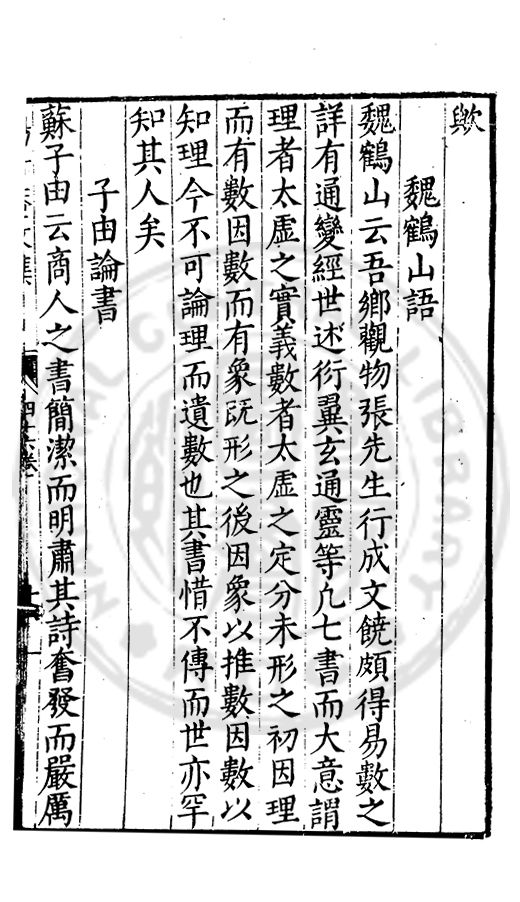 歟
魏鶴山語
魏鶴山云吾鄉觀物張先生行成文饒頗得易數之
詳有通變經世述衍翼玄通靈等凢七書而大意謂
理者太虛之實義數者太虛之定分未形之初因理
而有數因數而有象旣形之後因象以推數因數以
知理今不可論理而遺數也其書惜不傳而世亦罕
知其人矣
子由論書
蘇子由云商人之書簡潔而明肅其詩奮發而嚴厲